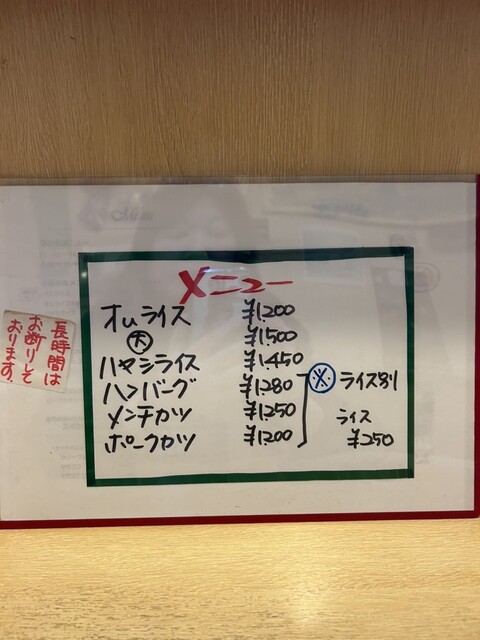 メニュー
オムライス ¥1.200
大 ¥1500
ハヤシライス ¥1.450
ハンバーグ ¥1.280 ※ ライス別
メンチカツ ¥1.250 ライス
ポークカツ ¥1200 ¥250
長時間は
お断りして
おります。